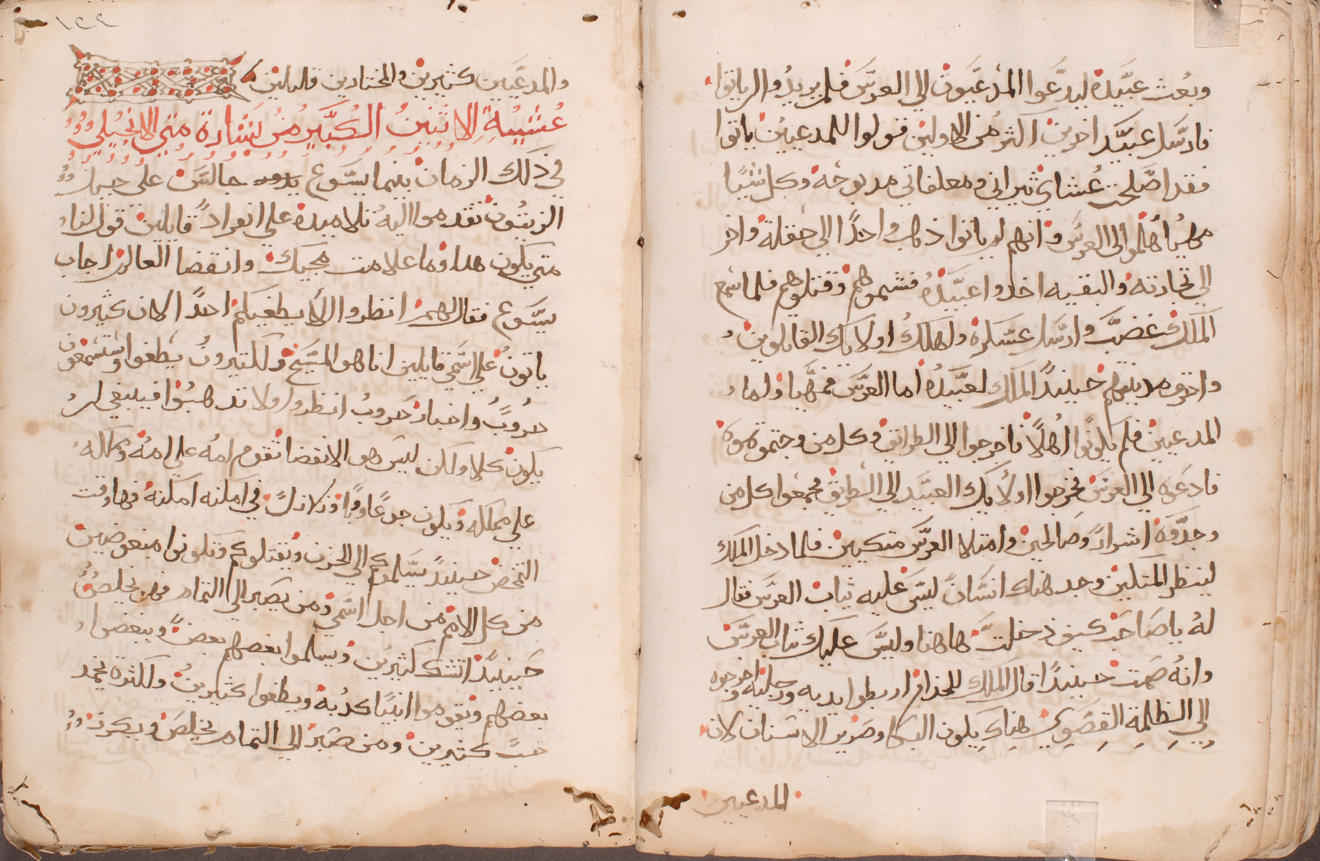 وبعث عبيده ليدعوا المدعيون الى العرس فلم يريدوا لياتوا
فارسل عبيد اخرين اكثر من الاولين قولوا للمدعيين ياتوا
فقد اصلحت عشاي ثيراني ومعلفاتي مدبوحه وكل شيا
مهيا هلموا الى العرس وانهم لم ياتوا ذهب واحدًا الى حقله واخر
الى تجارته والبقيه اخدوا عبيده فشتموهم وقتلوهم فلما سمع
الملك غضب وارسل عسكره واهلك اولايك القاتلون
واحرق مدينتهم حينيدًا الملك لعبيده اما العرس فمهيا واما
المدعيين فلم يكونوا اهلًا فاخرجوا الى الطرايق وكل من وجتموه
فادعوه الى العرس فخرجوا اولايك العبيد الى الطرايق فجمعوا كل من
وجدوه اشرارًا وصالحين وامتلا العرس متكيين فلما دخل الملك
لينظر المتكيين وجد هناك انسانًا ليس عليه ثياب العرس فقال
له ياصاحب كيف دخلت هاهنا وليس عليك ثياب العرس
وانه صمت حينيدًا قال الملك للخدام اربطوا يديه ورجليه واخرجوه
الى الظلمه القصوي هناك يكون البكا وصرير الاسنان لان
المدعيين
١٢٢
والمدعيين كتيرين والمختارين قليلين
عشية الاتنين الكبير من بشارة متي الانجيلي
في ذلك الزمان بينما يسوع جالس على جبل
الزيتون تقدموا اليه تلاميده على انفرادً قايلين قول لنا
متى يكون هدا وما علامت مجيك وانقضا العالم اجاب
يسوع فقال لهم انظروا الا يطغيكم احدًا لان كثيرون
ياتون على اسمي قايلين انا هو المسيح ولكتيرون يطغوا وستسمعون
حروب واخبار حروب انظروا ولا تدهبوا فينبغي ان
يكون كلا ولكن ليس هو الانقضا تقوم امه على امه ومملكه
على مملكه ويكون جوعًا ووبًا وزلازلً في امكنه امكنه فهاوقت
التمخض حينيدً يسلموكم الى الحزن ويقتلوكم وتكونوا مبغوضين
من كل الامم من اجل اسمي ومن يصبر الى التمام فهو يخلص
حينيدًا تشك كثيرين ويسلموا بعضهم بعضً ويبغضوا
بعضهم ويقوموا انبيا كدبه ويطغوا كثيرين ولكثرة تجمد
حب كتيرين ومن صبر الى التمام يخلص ويكرز